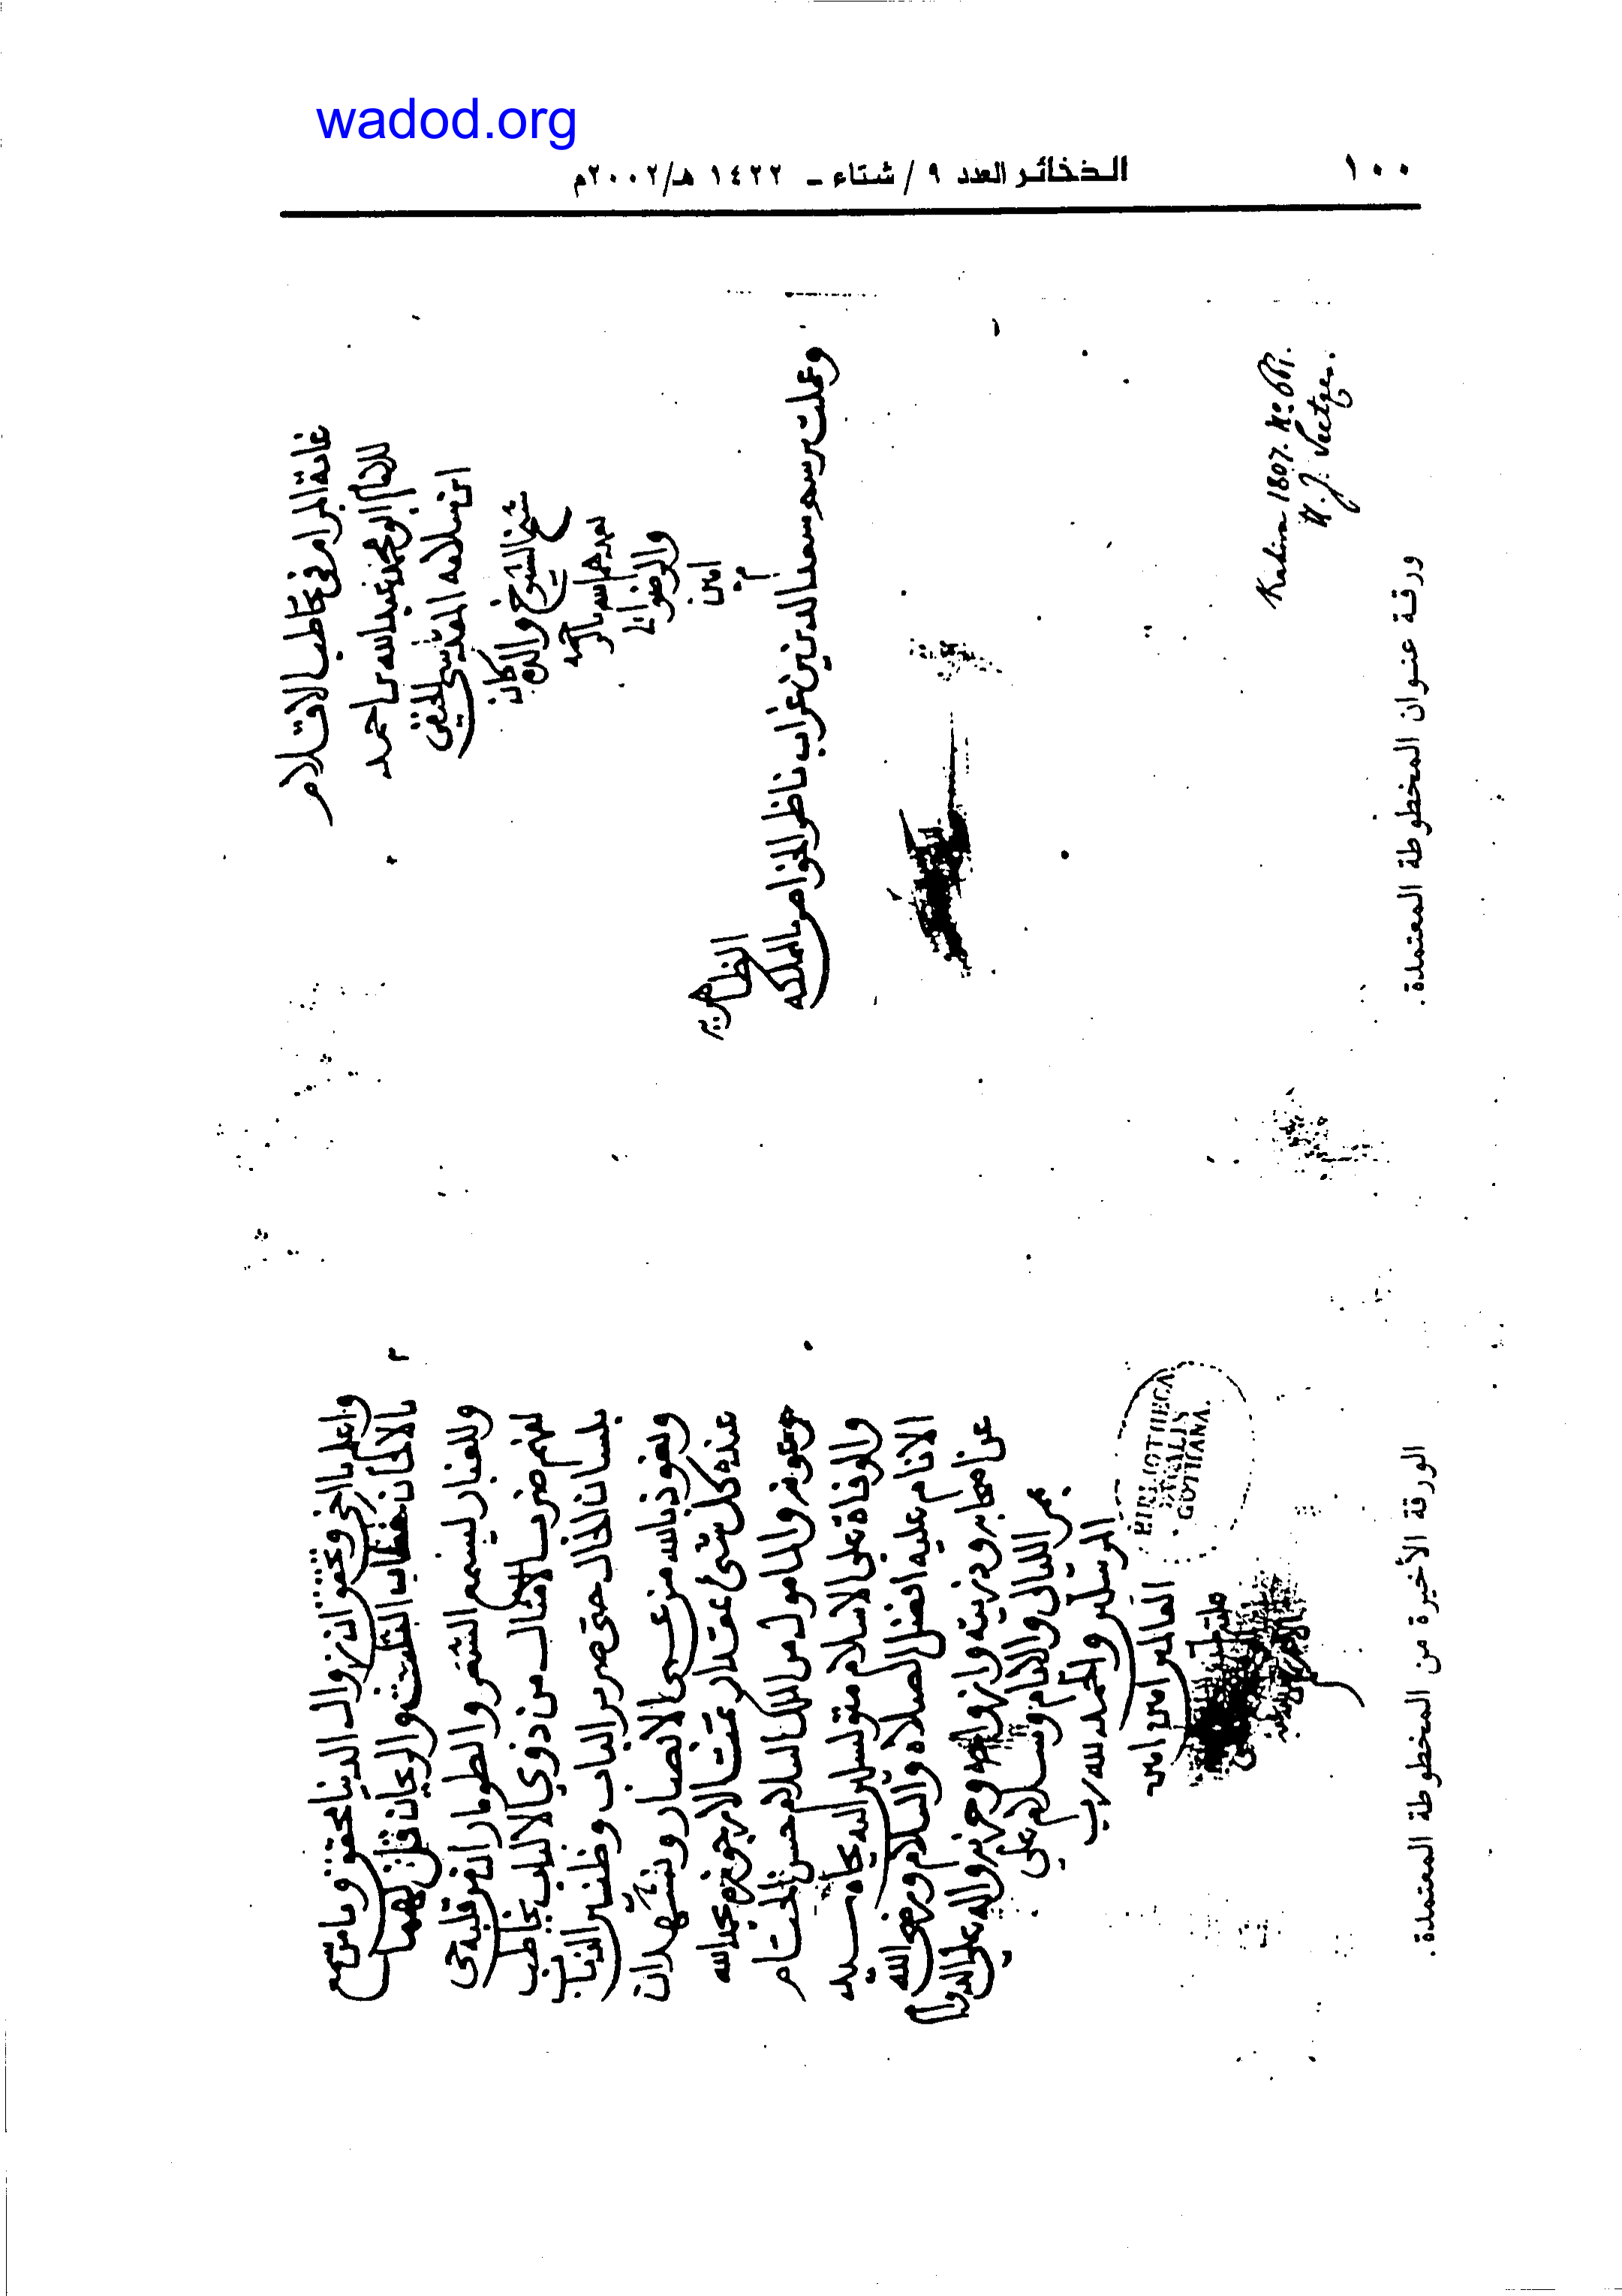 wadod.org
١٠٠
الذخائر العدد ٩ / شتاء - ١٤٢٢ هـ/٢٠٠٢م
غاية المرام في تخاطب الاقلام
للامام ابو محمد عبدالله بن احمد
ابن سلامه المقدسي الحنفي
شيخ الشيوخ والده كان
تغمدهما الله بالرحمه
والرضوان
امين
م
وعملت برسم سعد الدين بن غراب ناظر الخواص بالمملكه
الظاهريه
Kahira 1807. No.
U. J. Seetzen.
ورقة عنوان المخطوطة المعتمدة.
٢
واعلم يا اخي وتحقق ان زوال الدنيا محقق وما من سمع
بالاكان خطاب الثلث والريحان فقلن لهما
وللغبار ليسمع الشعر والطومار ان من قلبه حي
لفهم ضرب الامثال من ذوي الالباب يخاطب
بلسان الحال حتى صرير الباب وطنين الذباب
ونعوذ بالله من عمى الابصار ونشهد ان
عنده كل شئ بمقدار تمت الارجوزه بحمد الله
وعونه والمامول من الملك السلام حسن الختام
والوفاة على الاسلام متوسلين اليه بجاه سيد
الانام عليه افضل الصلاه والسلام ورضي الله
عن اصحابه وذريته وازواجه وحزبه واله على الدوام
بمر الليالي والايام وسلام على
المرسلين والحمد لله رب
العالمين امين امين
BIBLIOTHECA
DUCALIS
GOTHANA.
الورقة الأخيرة من المخطوطة المعتمدة.